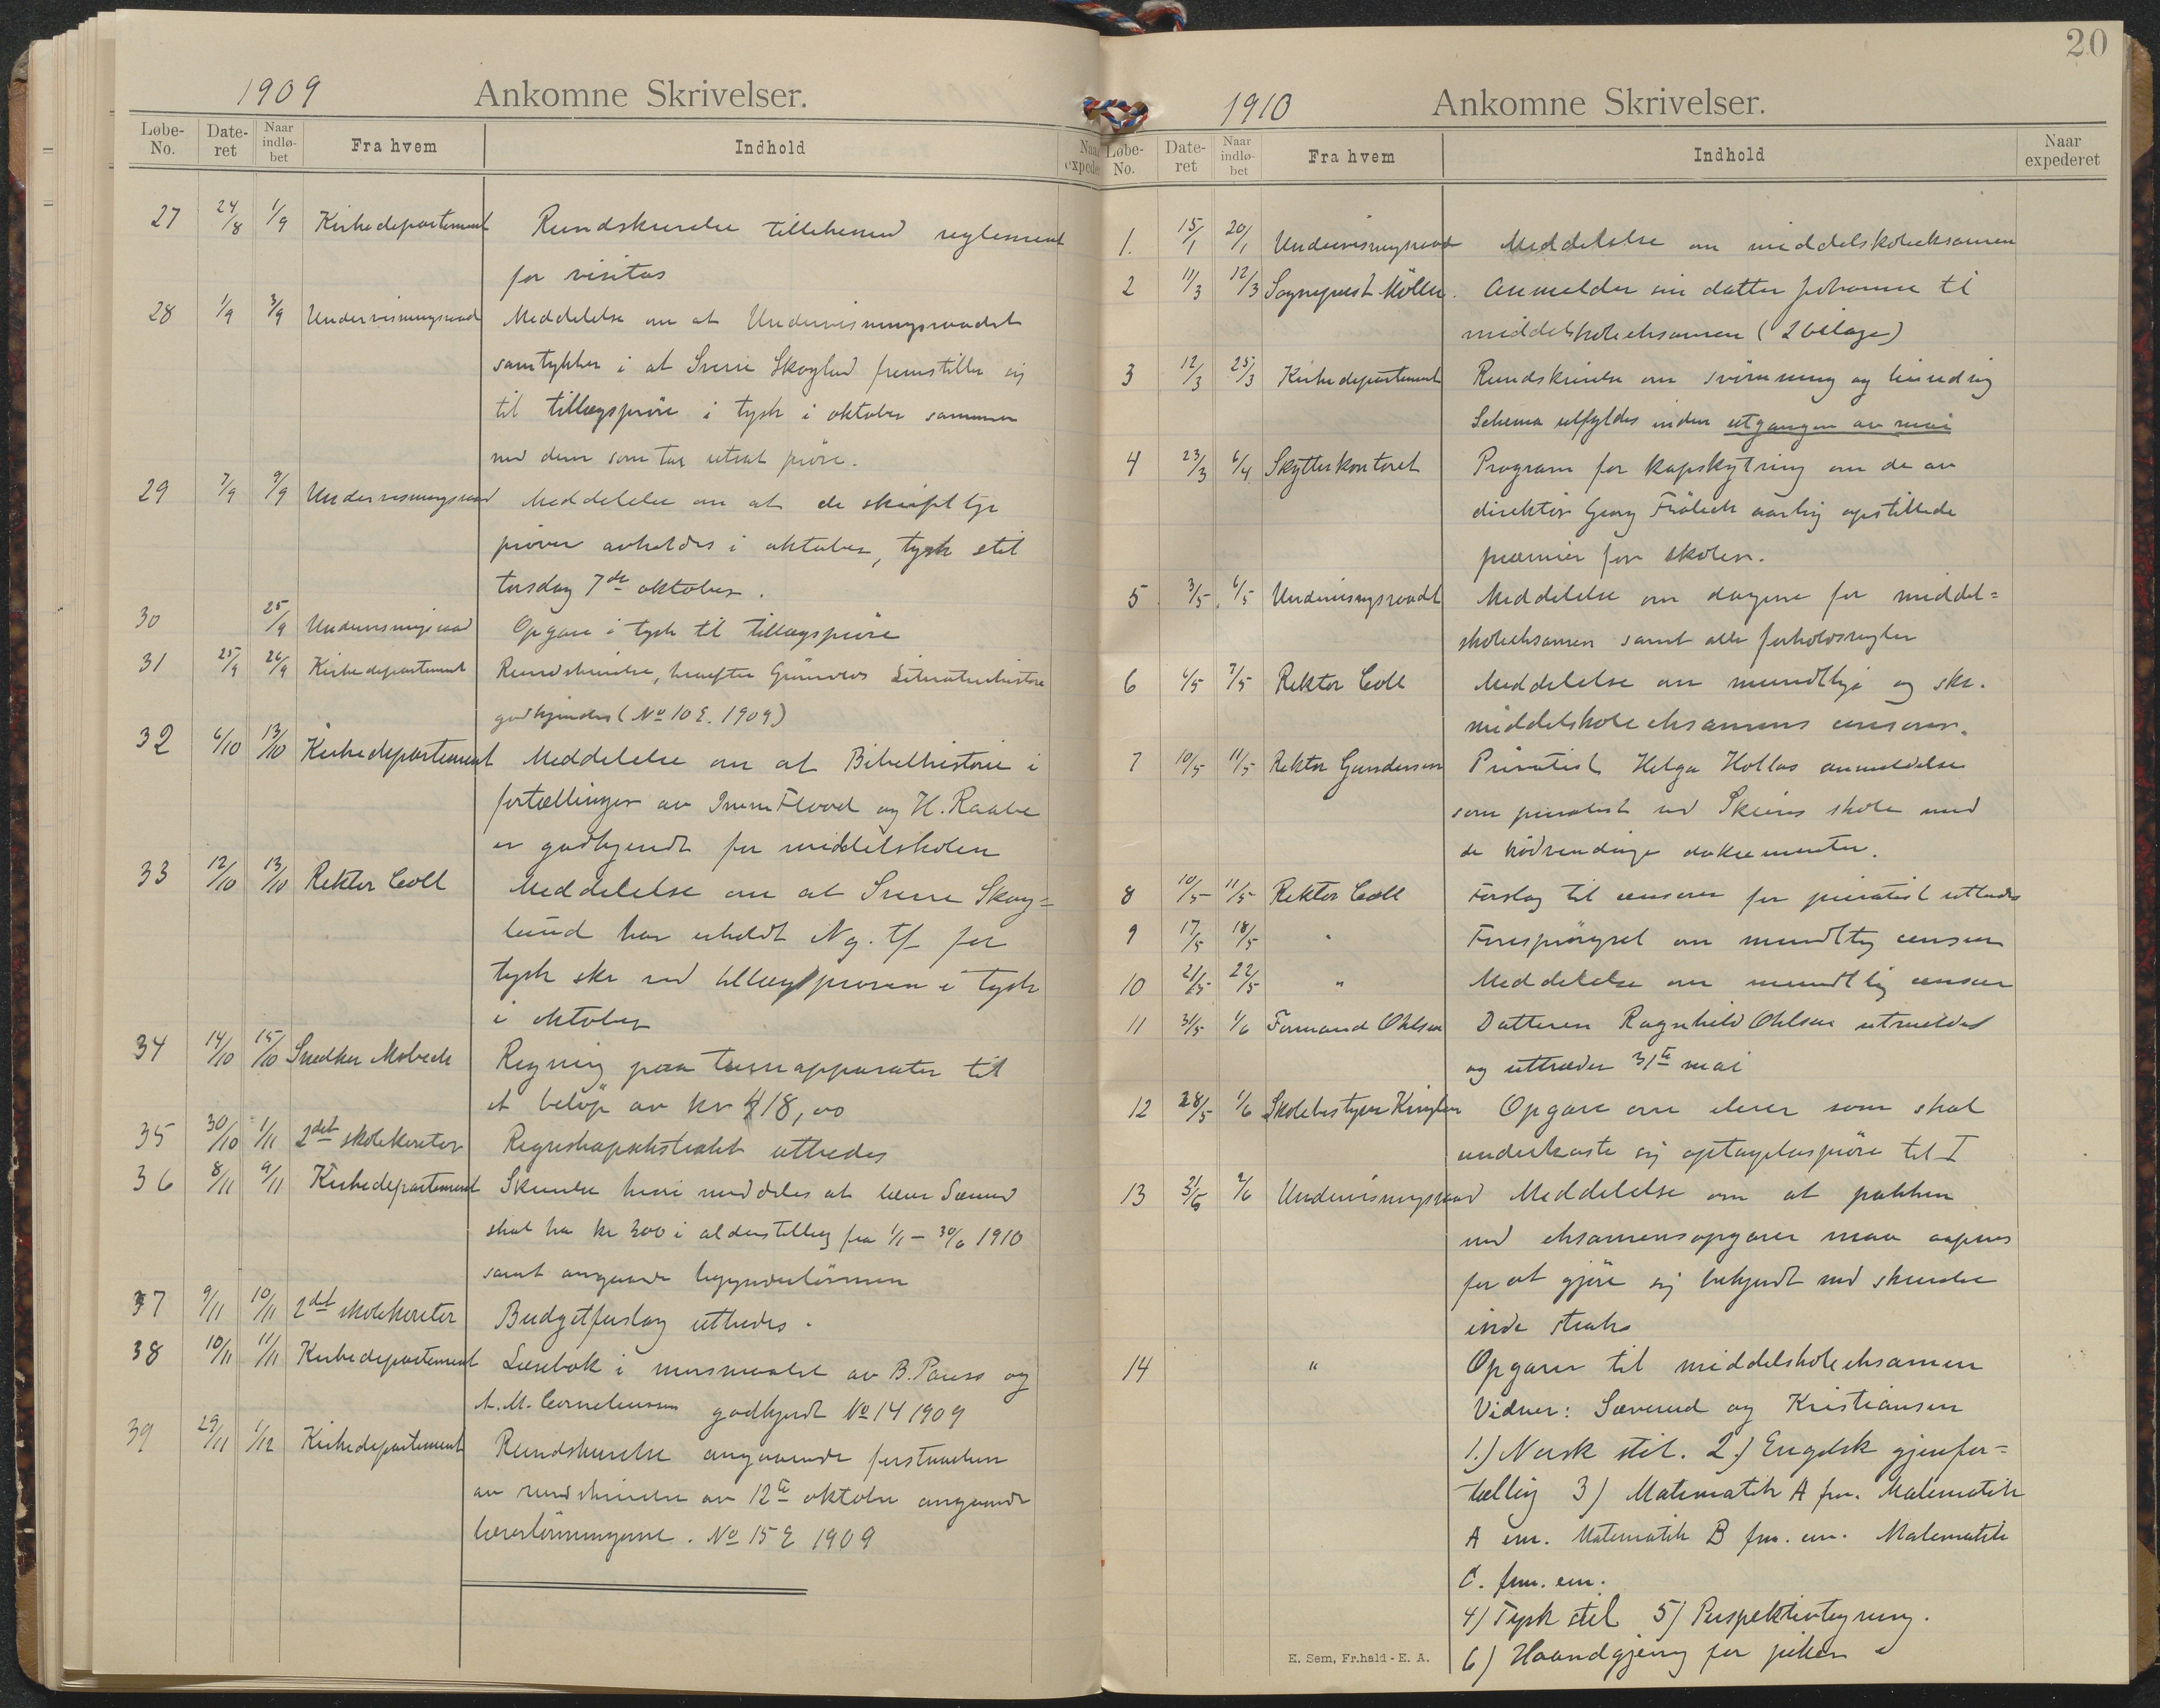 1909
Ankomne Skrivelser.
Løbe-No. Date-ret Naar indlø-bet Fra hvem Indhold Naar expede
27 24/8 1/9 Kirkedepartement Rundskrivelse tillikemed reglement
for visitas
28 1/9 3/9 Undervisningsraad Meddelelse om at Undervisningsraadet
samtykker i at Sverre Skoglund fremstiller sig
til tillægsprøve i tysk i oktober sammen
med dem som tar utsat prøve.
29 7/9 9/9 Undervisningsraad Meddelelse om at de skriftlige
prøver avholdes i oktober, tysk stil
torsdag 7de oktober.
30 25/9 Undervisningsraad Opgave i tysk til tillægsprøve
31 25/9 26/9 Kirkedepartement Rundskrivelse, hvorefter Literaturhistorie
godkjendes (No 10 E. 1909)
32 6/10 13/10 Kirkedepartement Meddelelse om at Bibelhistorie i
fortællinger av Flood og H. Raabe
er godkjendt for middelskolen
33 12/10 13/10 Rektor Coll Meddelelse om at Sverre Skog=
lund har erholdt Ng. tf for
tysk skr ved tillægsprøven i tysk
i oktober
34 14/10 15/10 Snedker Mobeck Regning paa turnapparater til
et beløp av kr 418,00
35 30/10 1/11 2det skolekontor Regnskapsekstrakt utbedes
36 8/11 9/11 Kirkedepartement Skrivelse hvori meddeles at lærer Sæverud
skal ha kr 300 i alderstillæg fra 1/1 - 30/6 1910
samt angaaende begynderlønnen
37 9/11 10/11 2det skolekontor Budgetforslag utbedes.
38 10/11 11/11 Kirkedepartement Læsebok i morsmaalet av B. Pauss og
A. M. Corneliussen godkjendt No 14 1909
39 29/11 1/12 Kirkedepartement Rundskrivelse angaaende forstaaelsen
av rundskrivelse av 12te oktober angaaende
lærerlønningerne. No 15 E 1909
20
1910
Ankomne Skrivelser.
Løbe-No. Date-ret Naar indlø-bet Fra hvem Indhold Naar expederet
1. 15/1 20/1 Undervisningsraad Meddelelse om middelskoleeksamen
2 11/3 12/3 Sogneprest Møller. Anmelder sin datter Johanne til
middelskoleeksamen (2 bilage)
3 12/3 25/3 Kirkedepartement Rundskrivelse om svømning og livredning
Schema utfyldes inden utgangen av mai
4 23/3 6/4 Skytterkontoret Program for kapskytning om de av
direktør Georg Frölich aarlig opstillede
præmier for skolen.
5 3/5 6/5 Undervisningsraadet Meddelelse om dagene for middel=
skoleeksamen samt alle forholdsregler
6 6/5 7/5 Rektor Coll Meddelelse om mundtlige og skr.
middelskoleeksamens censorer.
7 10/5 11/5 Rektor Gundersen Privatist Helga Hollas anmeldelse
som privatist ved Skiens skole med
de nødvendige dokumenter.
8 10/5 11/5 Rektor Coll Forslag til censorer for privatist utbedes
9 17/5 18/5 " Forespørgsel om mundtlig censur
10 21/5 22/5 " Meddelelse om mundtlig censur
11 31/5 1/6 Formand Ohlsen Datteren Ragnhild Ohlsen utmeldes
og uttræder 31te mai
12 28/5 1/6 Skolebestyrer Opgave over elever som skal
underkaste sig optagelsesprøve til I
13 31/5 2/6 Undervisningsraad Meddelelse om at pakken
med eksamensopgaver maa aapnes
for at gjøre sig bekjendt med skrivelse
inde straks
14 " Opgaver til middelskoleeksamen
Vidner: Sæverud og Kristiansen
1.) Norsk stil. 2.) Engelsk gjenfor=
tælling 3) Matematik A fm. Matematik
A em. Matematik B fm. em. Matematik
C. fm. em.
4) Tysk stil 5) Perspektivtegning.
6) Haandgjerning for piker
E. Sem, Fr.hald - E. A.